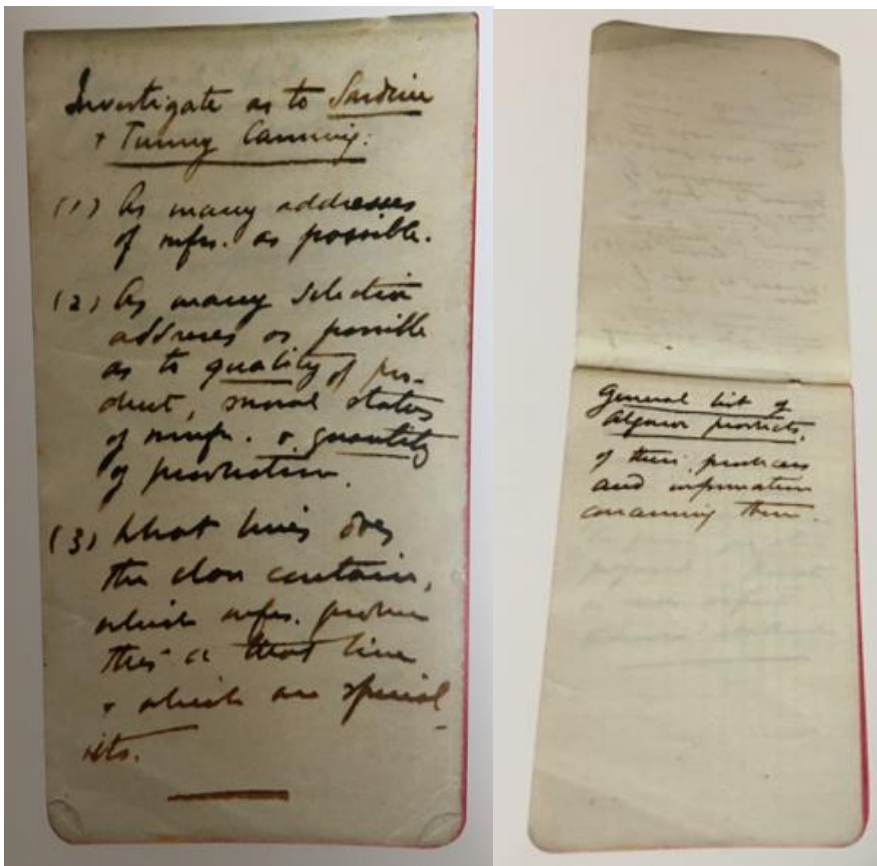 Investigate as to Sardine
+ Tunny Canning:
(1) As many addresses
of mfrs. as possible.
(2) As many selective
addresses as possible
as to quality of pro-
duct, moral status
of mnfr. & quantity
of production.
(3) What lines does
the class contain,
which mfrs. produce
this or that line
+ which are special-
ists.
General list of
Algarve products,
of their producers
and information
concerning them.